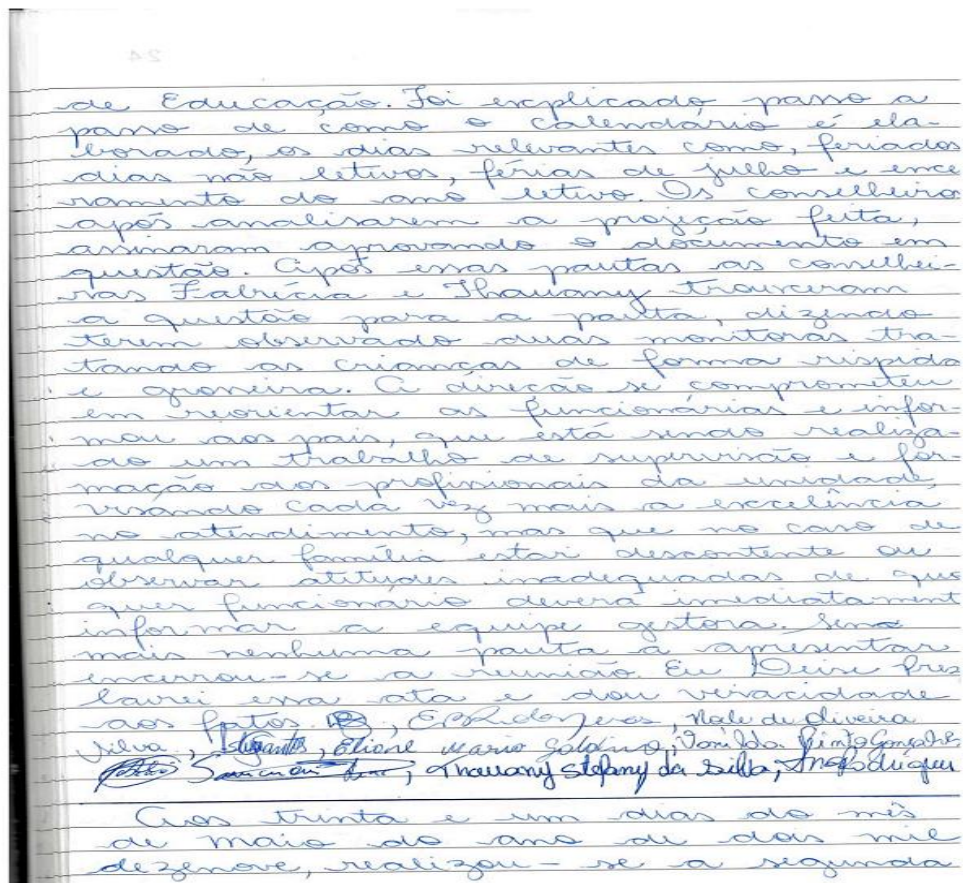 de Educação. Foi explicado passo a
passo de como o calendário é ela-
borado, os dias relevantes como, feriados
dias não letivos, férias de julho e ence
ramento do ano letivo. Os conselheiro
após analisarem a projeção feita,
assinaram aprovando o documento em
questão. Após essas pautas as conselhei-
ras Fabrícia e Thauany trouxeram
a questão para a pauta, dizendo
terem observado duas monitoras tra-
tando as crianças de forma ríspida
e grosseira. A direção se comprometeu
em reorientar as funcionárias e infor-
mou aos pais, que está sendo realiza-
do um trabalho de supervisão e for-
mação aos profissionais da unidade,
visando cada vez mais a excelência
no atendimento, mas que no caso de
qualquer família estar descontente ou
observar atitudes inadequadas de qua
quer funcionario deverá imediatament
informar a equipe gestora. Sem
mais nenhuma pauta a apresentar
encerrou-se a reunião. Eu Deise Pres
lavrei essa ata e dou veracidade
aos fatos. , de Oliveira
Silva, , Elione Maria Galdino,
Thauany Stefany da Silva,
Aos trinta e um dias do mês
de maio do ano de dois mil
dezenove, realizou-se a segunda